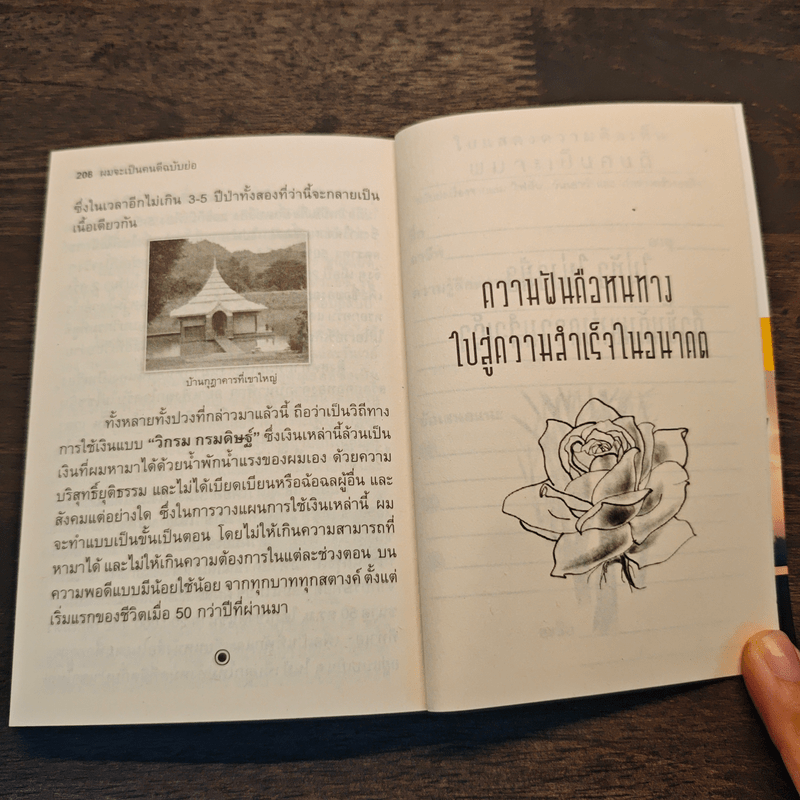 206 ผมจะเป็นคนดีฉบับย่อ
ซึ่งในเวลาอีกไม่เกิน 3-5 ปีป่าทั้งสองที่ว่านี้จะกลายเป็น
เนื้อเดียวกัน
บ้านกูฏาคารที่เขาใหญ่
ทั้งหลายทั้งปวงที่กล่าวมาแล้วนี้ ถือว่าเป็นวิถีทาง
การใช้เงินแบบ “วิกรม กรมดิษฐ์” ซึ่งเงินเหล่านี้ล้วนเป็น
เงินที่ผมหามาได้ด้วยน้ำพักน้ำแรงของผมเอง ด้วยความ
บริสุทธิ์ยุติธรรม และไม่ได้เบียดเบียนหรือฉ้อฉลผู้อื่น และ
สังคมแต่อย่างใด ซึ่งในการวางแผนการใช้เงินเหล่านี้ ผม
จะทำแบบเป็นขั้นเป็นตอน โดยไม่ให้เกินความสามารถที่
หามาได้ และไม่ให้เกินความต้องการในแต่ละช่วงตอน บน
ความพอดีแบบมีน้อยใช้น้อย จากทุกบาททุกสตางค์ ตั้งแต่
เริ่มแรกของชีวิตเมื่อ 50 กว่าปีที่ผ่านมา
ความฝันคือหนทาง
ไปสู่ความสำเร็จในอนาคต